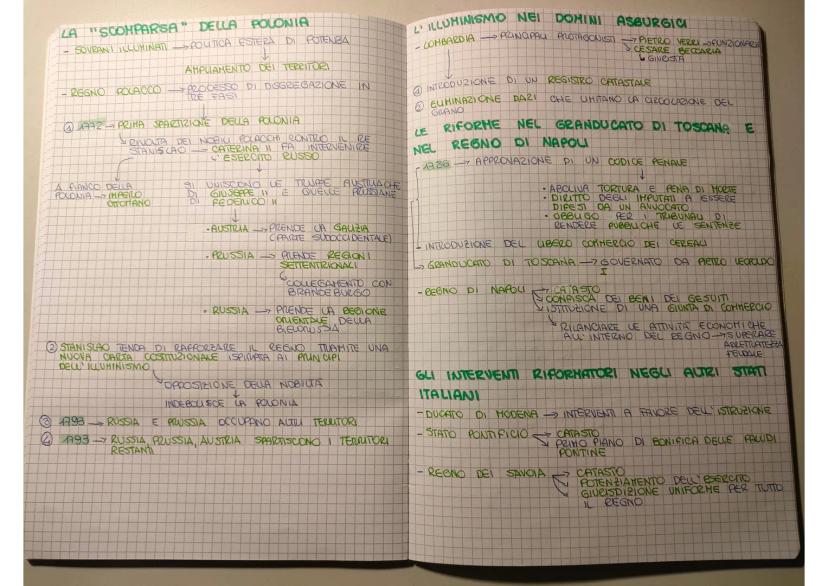 LA "SCOMPARSA" DELLA POLONIA
- SOVRANI ILLUMINATI → POLITICA ESTERA DI POTENZA
↓
AMPLIAMENTO DEI TERRITORI
- REGNO POLACCO → PROCESSO DI DISGREGAZIONE IN
TRE FASI
① 1772 → PRIMA SPARTIZIONE DELLA POLONIA
RIVOLTA DEI NOBILI POLACCHI CONTRO IL RE
STANISLAO → CATERINA II FA INTERVENIRE
L'ESERCITO RUSSO
A FIANCO DELLA
POLONIA → IMPERO
OTTOMANO
SI UNISCONO LE TRUPPE AUSTRIACHE
DI GIUSEPPE II E QUELLE PRUSSIANE
DI FEDERICO II
• AUSTRIA → PRENDE LA GALIZIA
(PARTE SUDOCCIDENTALE)
• PRUSSIA → PRENDE REGIONI
SETTENTRIONALI
COLLEGAMENTO CON
BRANDEBURGO
• RUSSIA → PRENDE LA REGIONE
ORIENTALE DELLA
BIELORUSSIA
② STANISLAO TENTA DI RAFFORZARE IL REGNO TRAMITE UNA
NUOVA CARTA COSTITUZIONALE ISPIRATA AI PRINCIPI
DELL'ILLUMINISMO
OPPOSIZIONE DELLA NOBILTÀ
↓
INDEBOLISCE LA POLONIA
③ 1793 → RUSSIA E PRUSSIA OCCUPANO ALTRI TERRITORI
④ 1793 → RUSSIA, PRUSSIA, AUSTRIA SPARTISCONO I TERRITORI
RESTANTI
L'ILLUMINISMO NEI DOMINI ASBURGICI
- LOMBARDIA → PRINCIPALI PROTAGONISTI → PIETRO VERRI → FUNZIONARIO
CESARE BECCARIA
↳ GIURISTA
① INTRODUZIONE DI UN REGISTRO CATASTALE
② ELIMINAZIONE DAZI CHE LIMITANO LA CIRCOLAZIONE DEL
GRANO
LE RIFORME NEL GRANDUCATO DI TOSCANA E
NEL REGNO DI NAPOLI
1786 → APPROVAZIONE DI UN CODICE PENALE
↓
• ABOLIVA TORTURA E PENA DI MORTE
• DIRITTO DEGLI IMPUTATI A ESSERE
DIFESI DA UN AVVOCATO
• OBBLIGO PER I TRIBUNALI DI
RENDERE PUBBLICHE LE SENTENZE
- INTRODUZIONE DEL LIBERO COMMERCIO DEI CEREALI
→ GRANDUCATO DI TOSCANA → GOVERNATO DA PIETRO LEOPOLDO
I
- REGNO DI NAPOLI → CATASTO
CONFISCA DEI BENI DEI GESUITI
ISTITUZIONE DI UNA GIUNTA DI COMMERCIO
RILANCIARE LE ATTIVITÀ ECONOMICHE
ALL'INTERNO DEL REGNO → SUPERARE
ARRETRATEZZA
FEUDALE
GLI INTERVENTI RIFORMATORI NEGLI ALTRI STATI
ITALIANI
- DUCATO DI MODENA → INTERVENTI A FAVORE DELL'ISTRUZIONE
- STATO PONTIFICIO → CATASTO
PRIMO PIANO DI BONIFICA DELLE PALUDI
PONTINE
- REGNO DEI SAVOIA → CATASTO
POTENZIAMENTO DELL'ESERCITO
GIURISDIZIONE UNIFORME PER TUTTO
IL REGNO